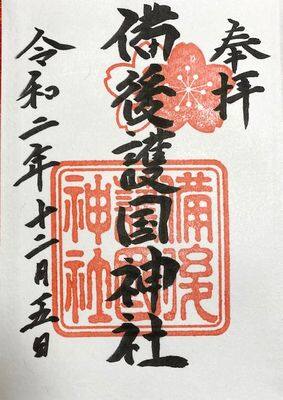 奉拝
備後護国神社
令和二年十二月五日
備後
護国
神社